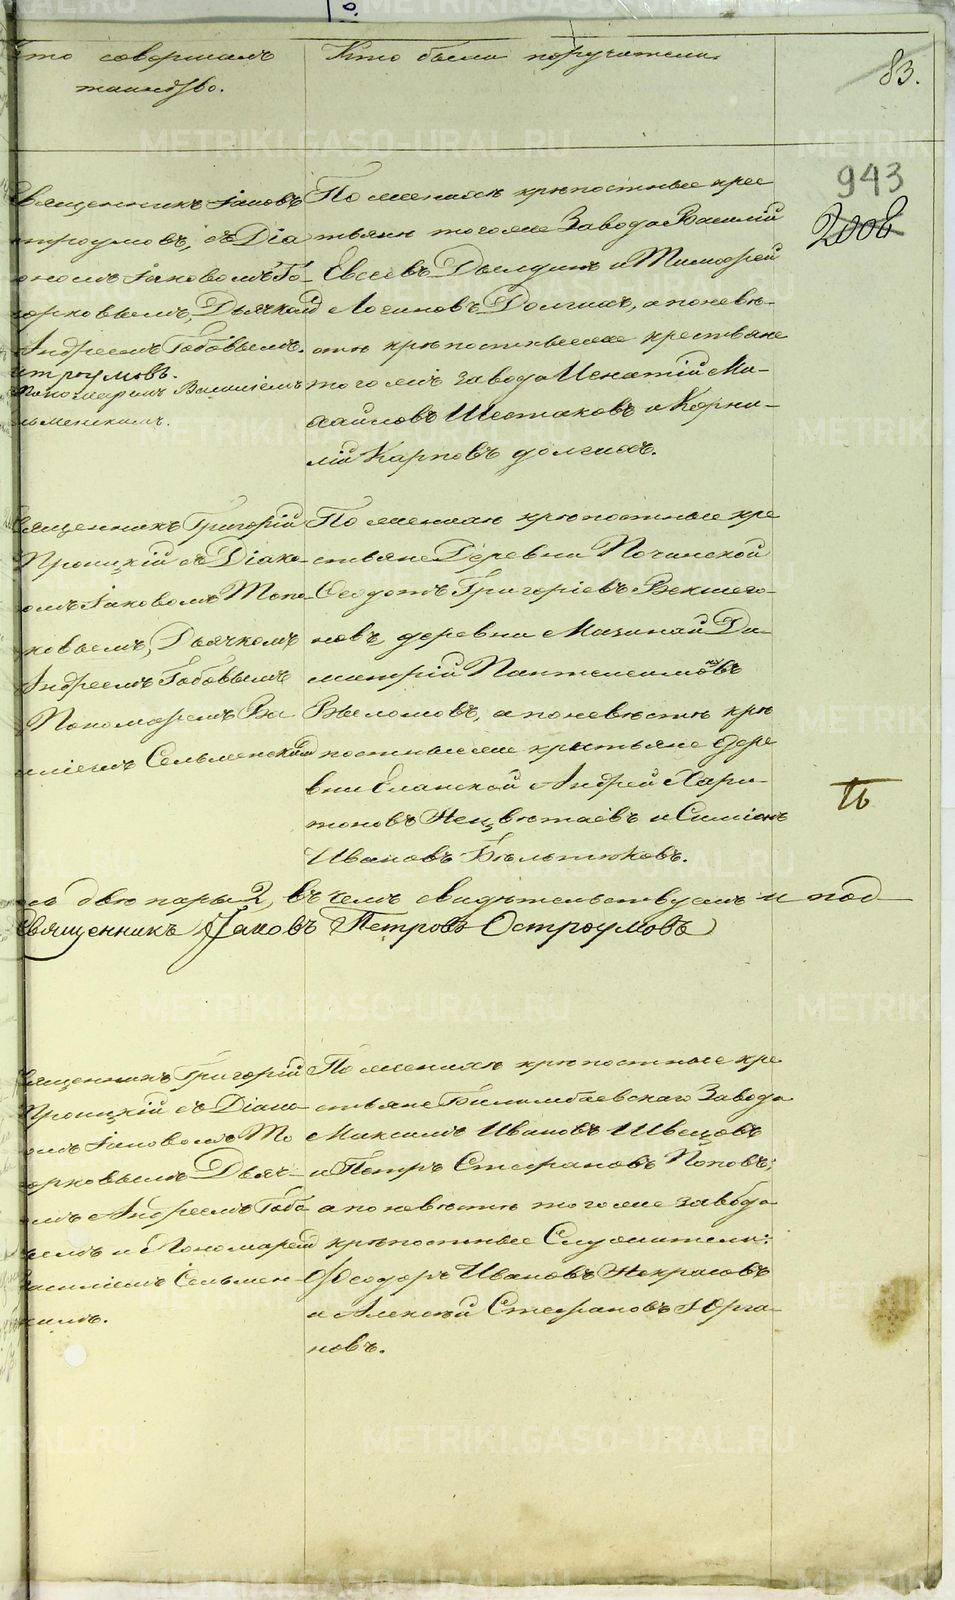 то совершалъ
таинство.
Кто были поручатели.
83.
943
2006
Священникъ Іаковъ
Остроумовъ, съ Діа
кономъ Іаковомъ То-
порковымъ, Дьячкомъ
Андреемъ Бабовымъ.
Остроумовъ.
Пономаремъ Василіемъ
Сельменскимъ.
По женихѣ крѣпостные крес
тьяне тогоже Завода Василій
Евсеевъ Дылдинъ и Тимофей
Логиновъ Долгихъ, а по невѣ-
стѣ крѣпостныеже крестьяне
того жъ завода Игнатій Ми-
хайловъ Шестаковъ и Корни-
лій Карповъ Долгихъ.
Священникъ Григорій
Троицкій съ Діако-
номъ Іаковомъ Топо-
рковымъ, Дьячкомъ
Андреемъ Бабовымъ
Пономаремъ Ва
силіемъ Сельменскимъ
По женихѣ крѣпостные кре
стьяне Деревни Починской
Ѳеодотъ Григоріевъ Векшего-
новъ, деревни Мазиной Ди-
митрій Пантелеимоновъ
Вяломовъ, а по невѣстѣ крѣ
постныеже крестьяне дере
вни Еланской Андрей Хари-
тоновъ Нецвѣтаевъ и Симіонъ
Ивановъ Бѣльтюковъ.
двѣ пары 2, въ чемъ свидѣтельствуемъ и под
Священникъ Іаковъ Петровъ Остроумовъ
Священникъ Григорій
Троицкій съ Діако-
номъ Іаковомъ То
порковымъ Дьяч-
комъ Андреемъ Бабо
вымъ и Пономаремъ
Василіемъ Сельмен-
скимъ.
По женихѣ крѣпостные кре
стьяне Билимбаевскаго Завода
Максимъ Ивановъ Швецовъ
и Петръ Стефановъ Поповъ;
а по невѣстѣ тогоже завода
крѣпостные Служители:
Ѳеодоръ Ивановъ Некрасовъ
и Алексѣй Стефановъ Юрга-
новъ.
METRIKI.GASO-URAL.RU